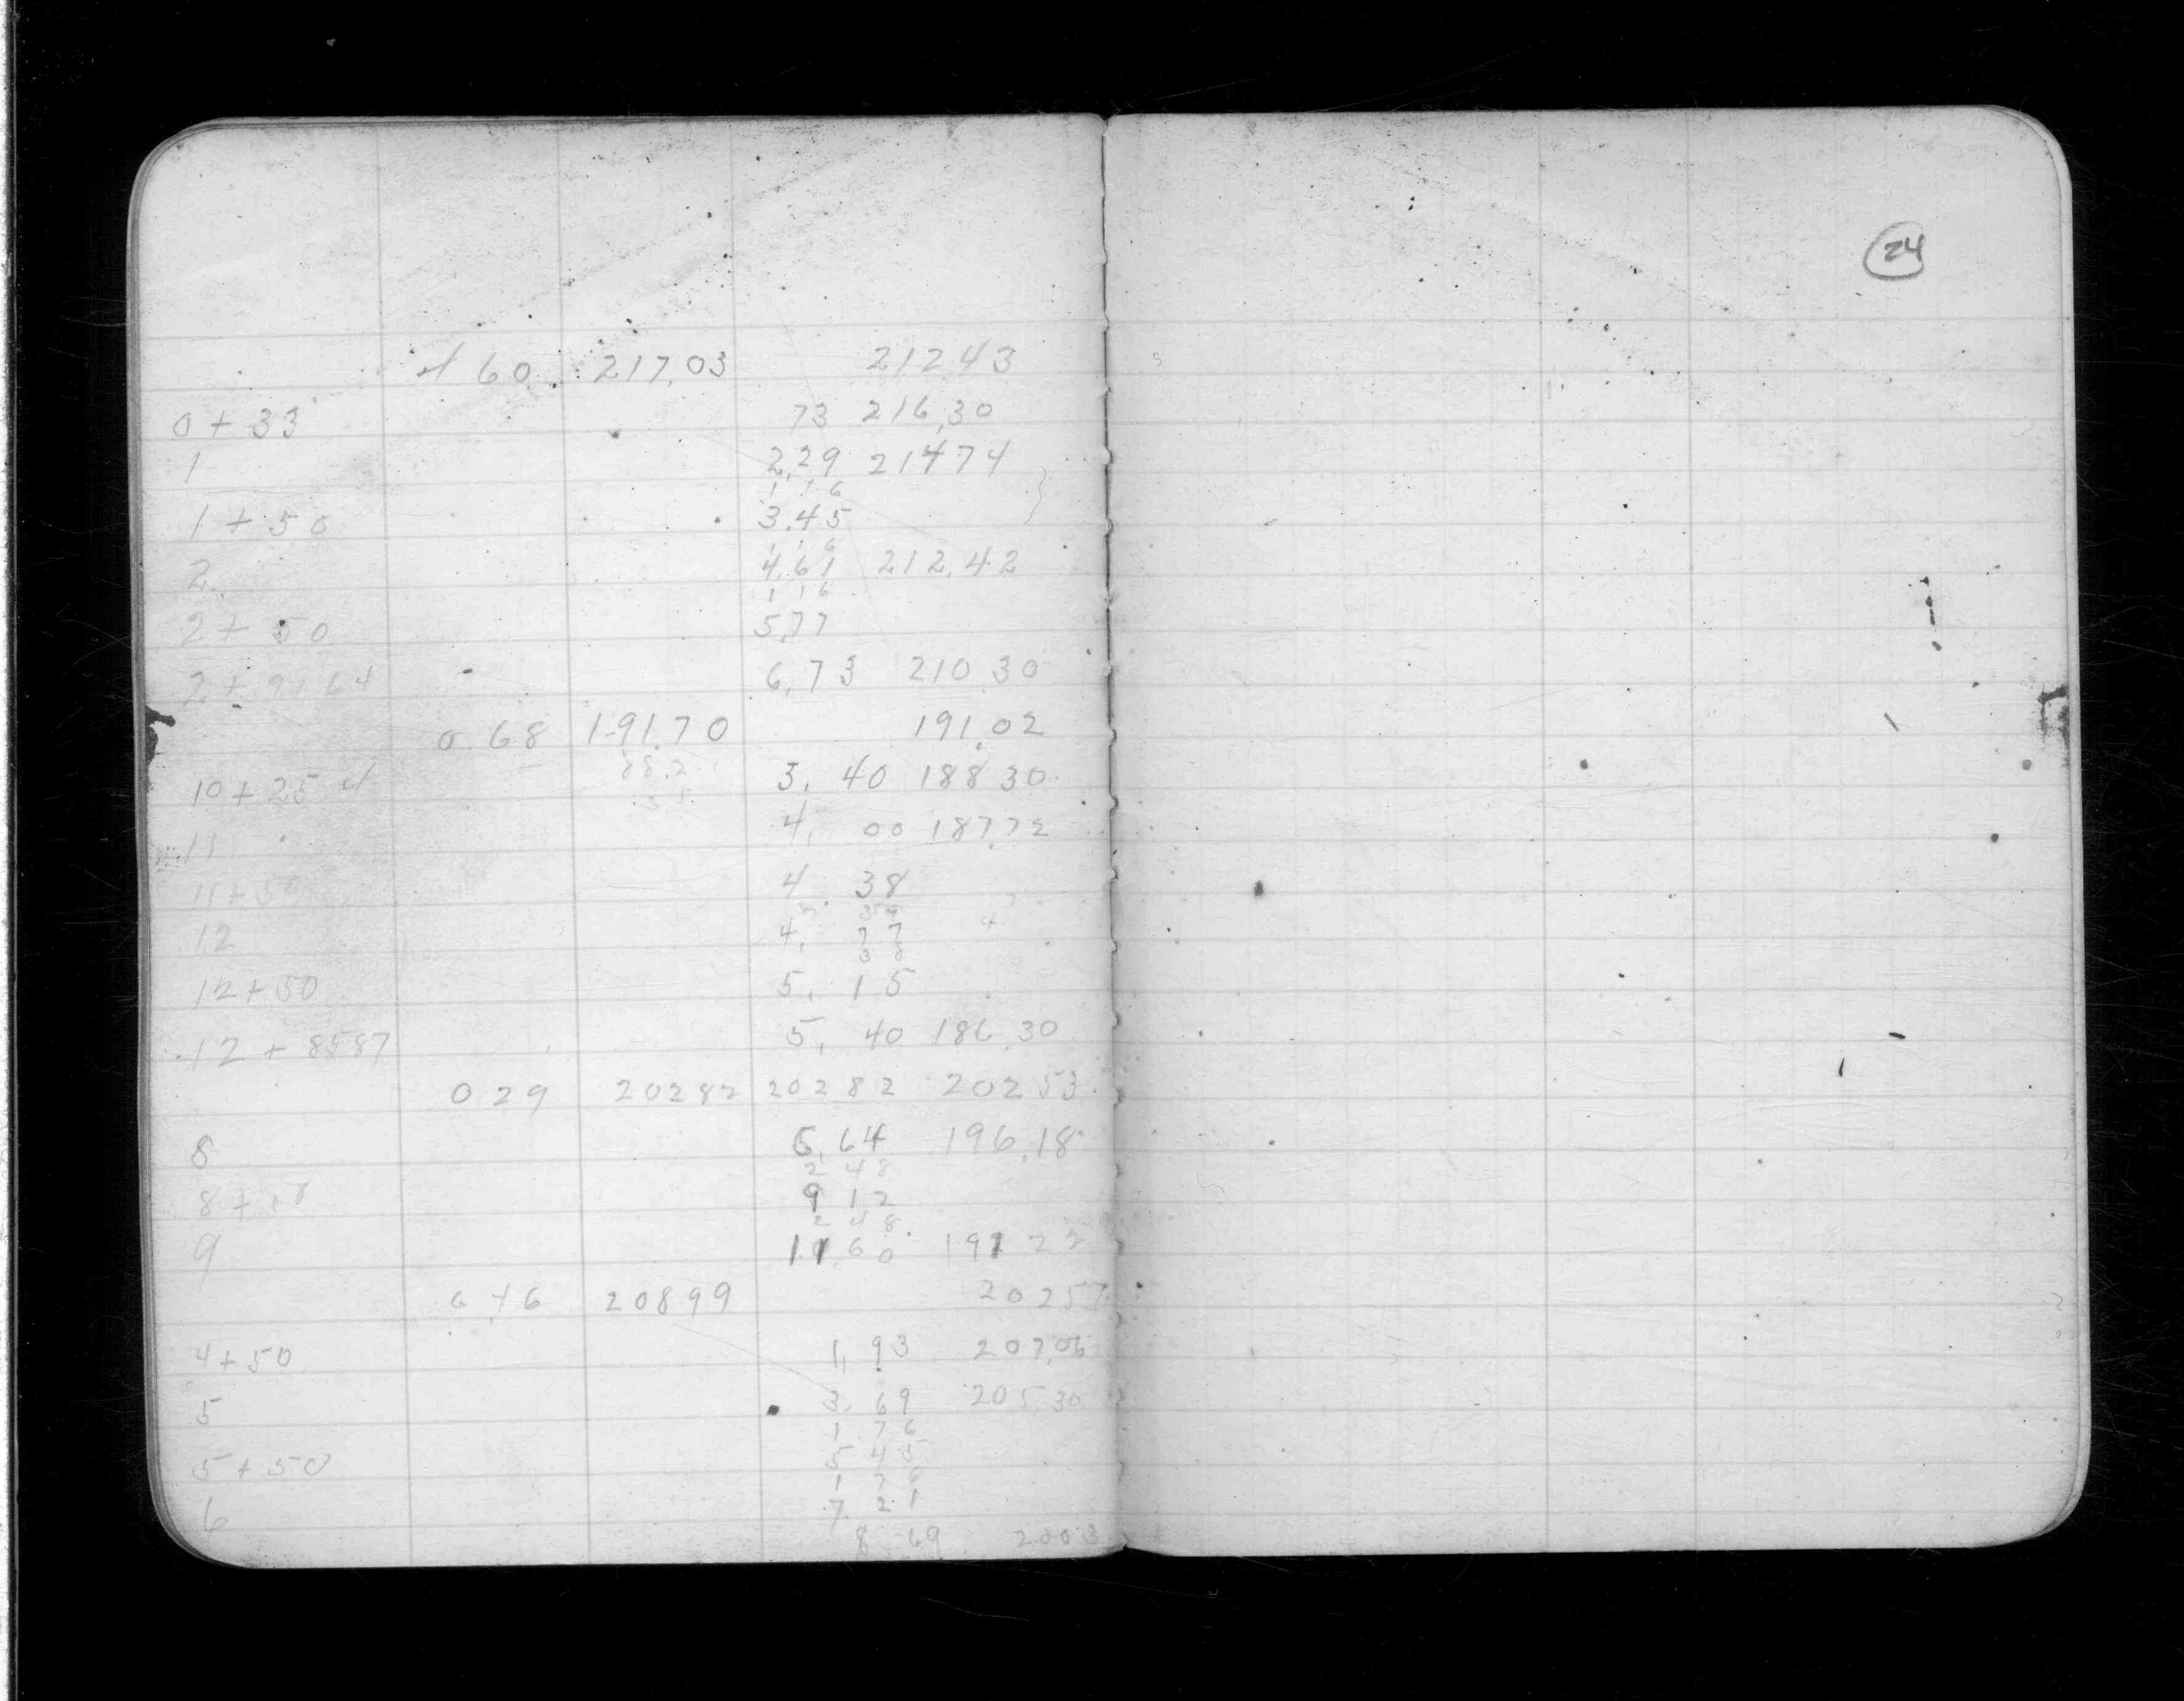 4 60 217,03 21243
0 + 33 73 216,30
1 2,29 21474
1 16
1 + 50 3.45
1 16
2 4,61 212.42
1 16
2 + 50 5,77
2 + 9164 6,73 210 30
0 68 191.70 191.02
10 + 25 3, 40 188 30
11 4, 00 187.72
11 + 50 4 38
12 4, 77
38
12 + 50 5, 15
12 + 8587 5, 40 186.30
0 29 20282 20282 20253
8 6,64 196,18
2 48
8 + 50 9 12
2 48
9 11 60 191 22
20899 20257
4 + 50 1, 93 207,06
5 3, 69 205,30
1 76
5 + 50 5 45
1 76
6 7 21
8 69
24